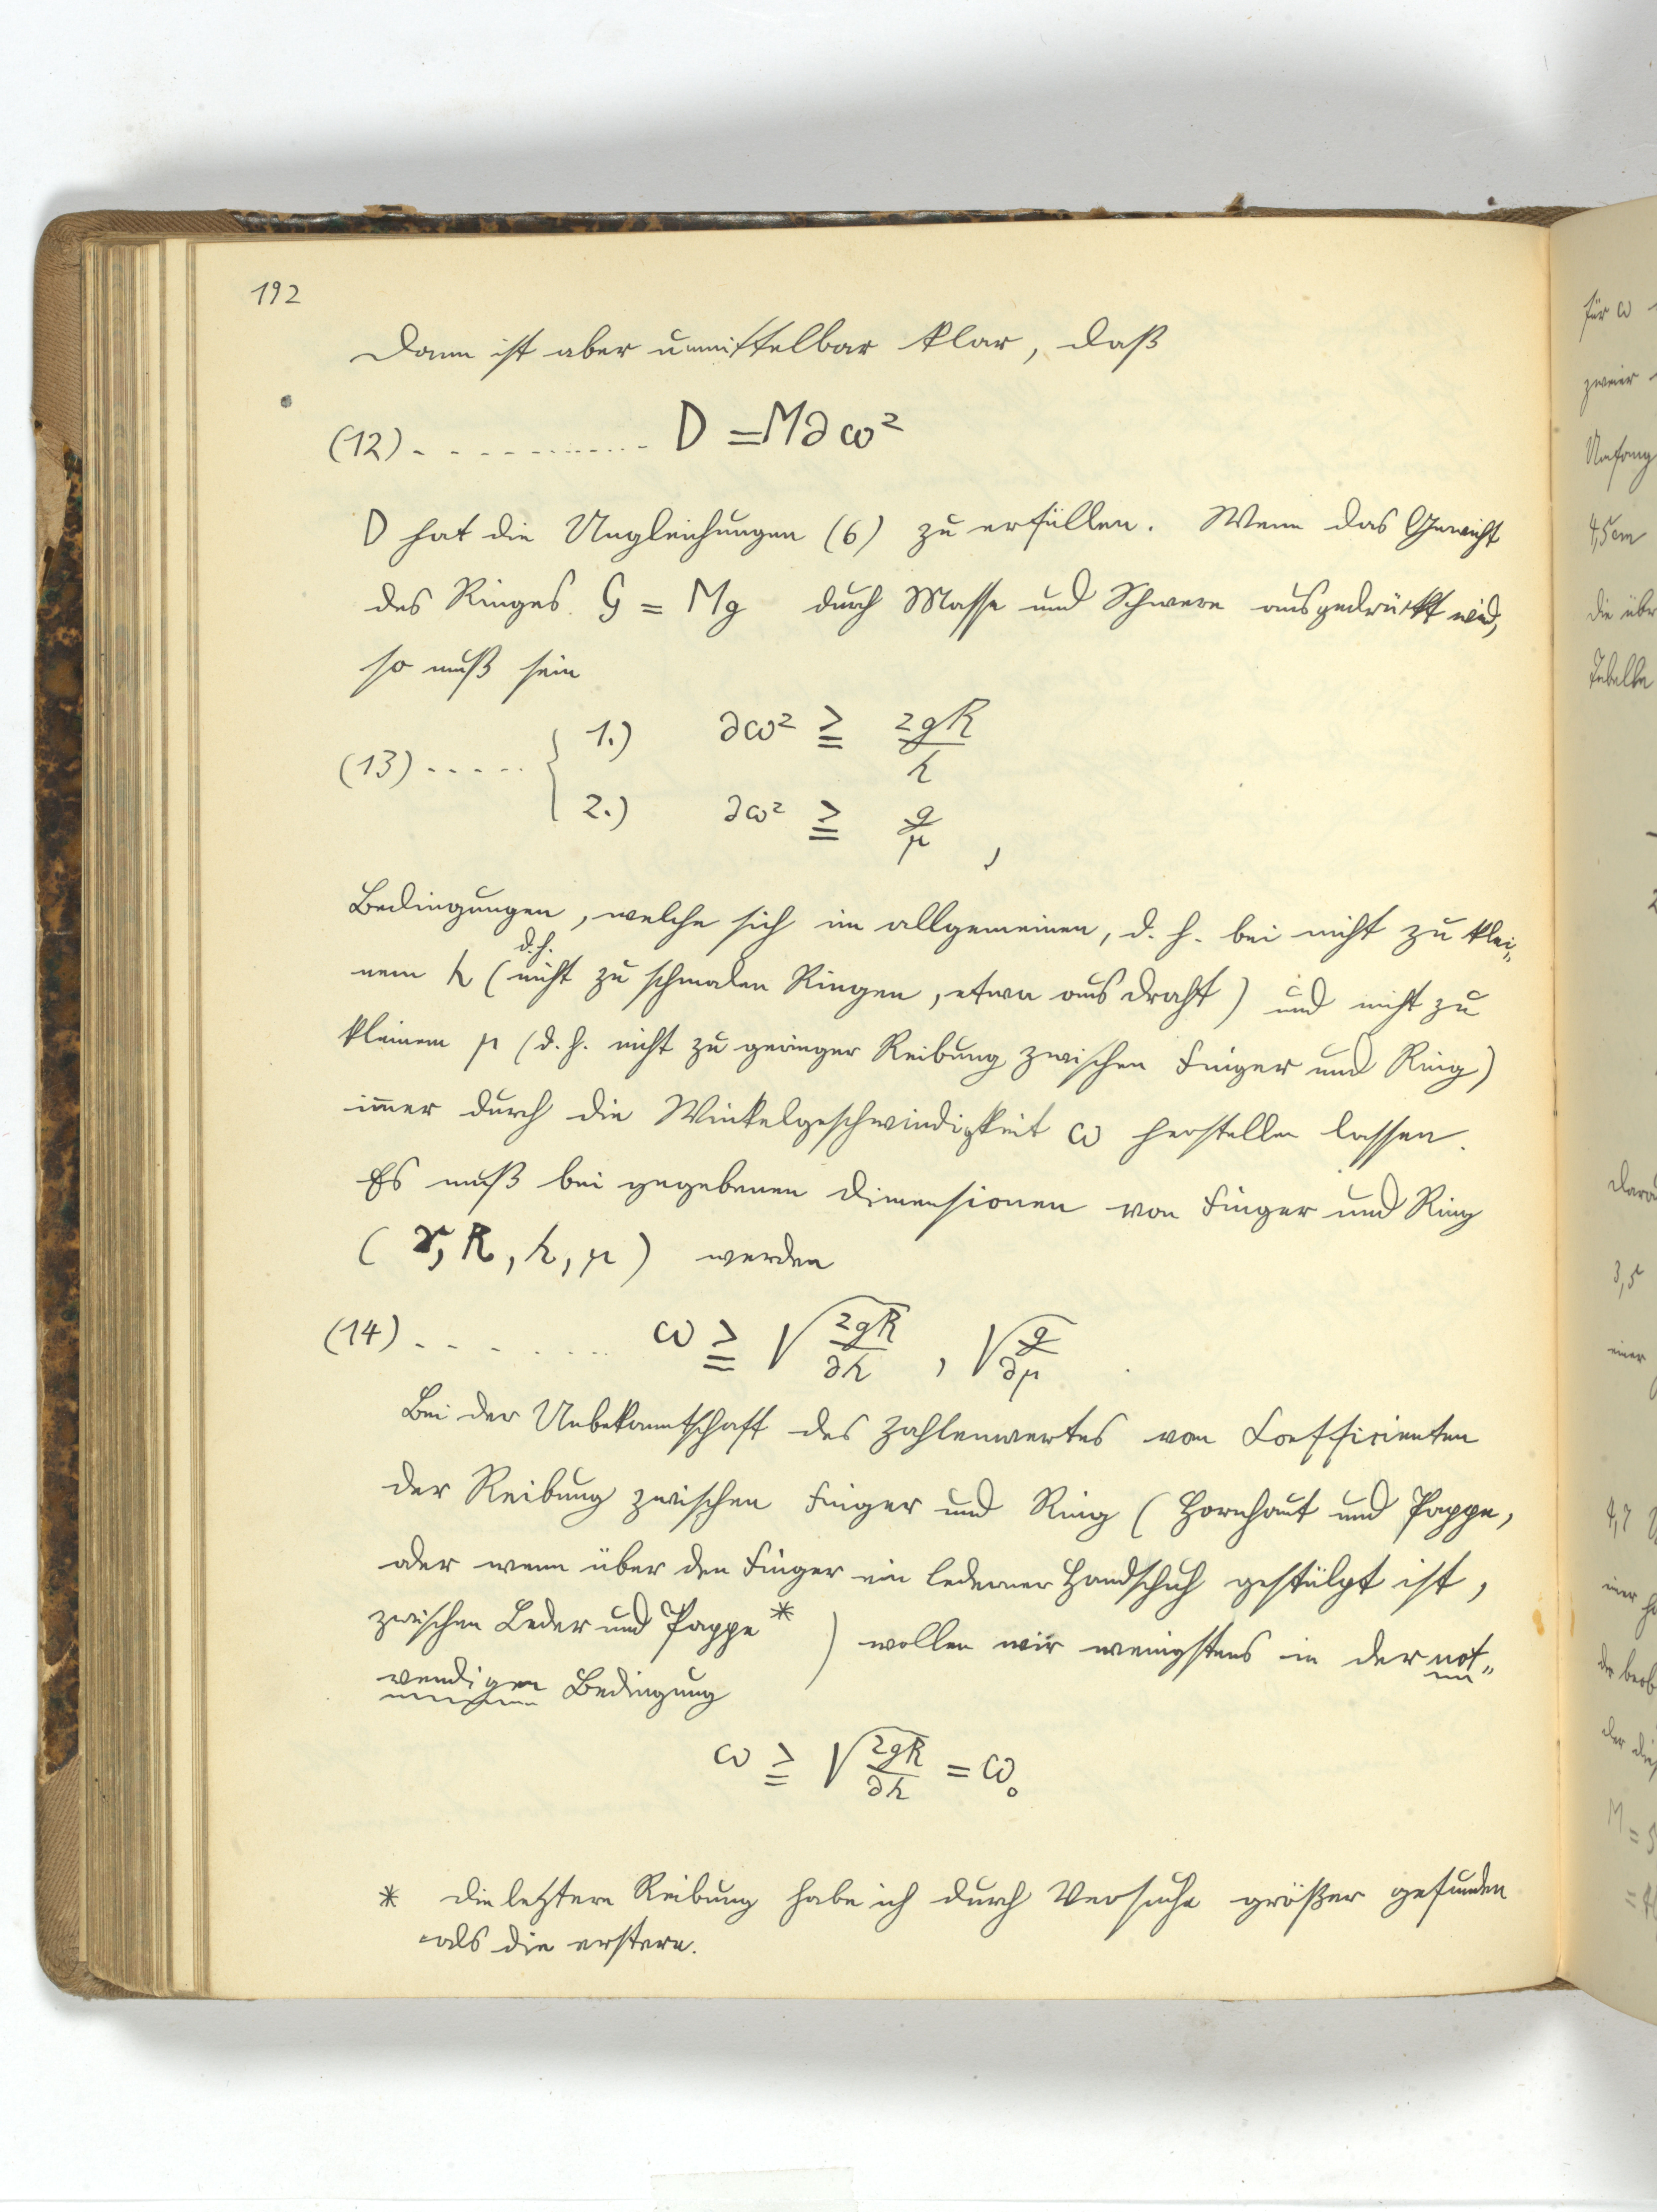 192
Dann ist aber unmittelbar klar, daß
(12) . . . . . . . . . . . . D = M∂ω²
D hat die Ungleichungen (6) zu erfüllen. Wenn das Gewicht
des Ringes G = Mg durch Masse und Schwere ausgedrückt wird,
so muß sein
(13) . . . . . { 1.) ∂ω² ≧ 2gR/h
2.) ∂ω² ≧ g/μ ,
Bedingungen, welche sich im allgemeinen, d. h. bei nicht zu klei„
nem h (d.h. nicht zu schmalen Ringen, etwa aus Draht) und nicht zu
kleinem μ (d. h. nicht zu geringer Reibung zwischen Finger und Ring)
immer durch die Winkelgeschwindigkeit ω herstellen lassen.
Es muß bei gegebenen Dimensionen von Finger und Ring
(r, R, h, μ) werden
(14) . . . . . . . . ω ≧ √(2gR/∂h) , √(g/∂μ) .
Bei der Unbekanntschaft des Zahlenwertes vom Coefficienten
der Reibung zwischen Finger und Ring (Hornhaut und Pappe,
oder wenn über den Finger ein lederner Handschuh gestülpt ist,
zwischen Leder und Pappe *) wollen wir wenigstens in der not„
wendigen Bedingung
ω ≧ √(2gR/∂h) = ω₀
* Die letztere Reibung habe ich durch Versuche größer gefunden
als die erstere.
für ω
zweier
Umfang
4,5 cm
die über
Tabelle
3,5
einer
4,7
M = 5